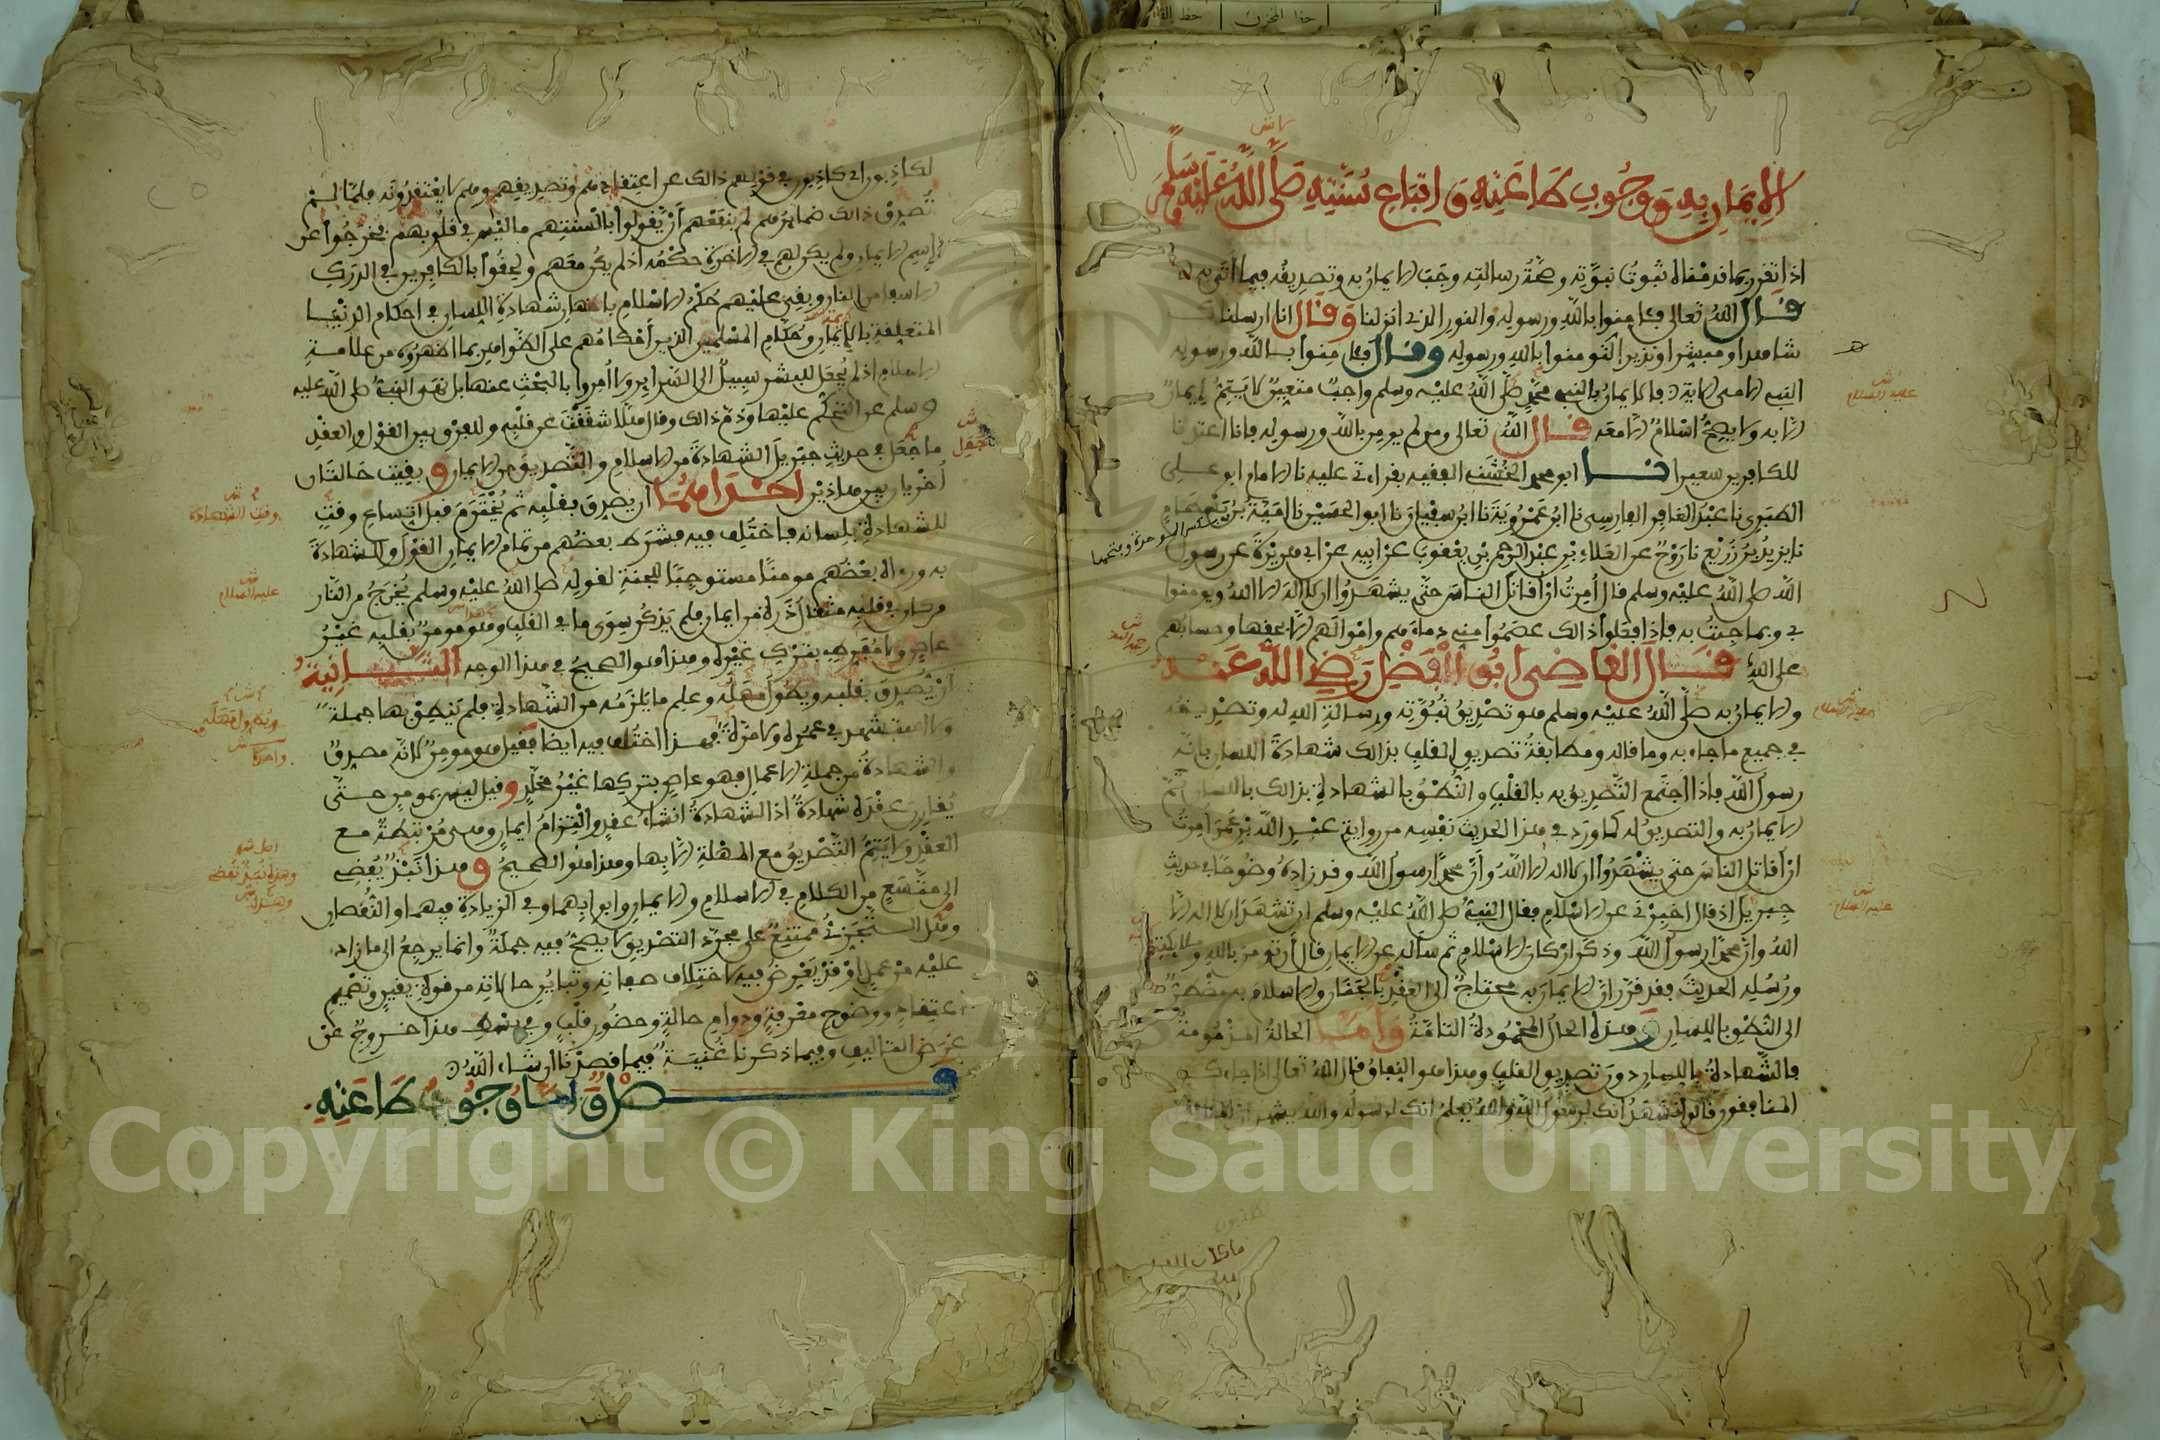 الإيمان به ووجوب طاعته واتباع سنته صلى الله عليه وسلم
اذا تقرر بما قدمناه ثبوت نبوته وصحة رسالته وجب الايمان به وتصديقه فيما اتى به
قال الله تعالى فامنوا بالله ورسوله والنور الذي انزلنا وقال انا ارسلناك
شاهدا ومبشرا ونذيرا لتومنوا بالله ورسوله وقال فامنوا بالله ورسوله
النبي الامي الاية فالايمان بالنبي محمد صلى الله عليه وسلم واجب متعين لا يتم ايمان
الا به ولا يصح اسلام الا معه قال الله تعالى ومن لم يومن بالله ورسوله فانا اعتدنا
للكافرين سعيرا نا ابو محمد الخشني الفقيه بقراءتي عليه نا الامام ابو علي
الطبري نا عبد الغافر الفارسي نا ابن عمرويه نا ابن سفيان نا ابو الحسين نا امية بن بسطام
نا يزيد بن زريع نا روح عن العلاء بن عبد الرحمن بن يعقوب عن ابيه عن ابي هريرة عن رسول
الله صلى الله عليه وسلم قال امرت ان اقاتل الناس حتى يشهدوا ان لا اله الا الله ويومنوا
بي وبما جئت به فاذا فعلوا ذالك عصموا مني دماءهم واموالهم الا بحقها وحسابهم
على الله قال القاضي ابو الفضل رضي الله عنه
والايمان به صلى الله عليه وسلم هو تصديق نبوته ورسالة الله له وتصديقه
في جميع ما جاء به وما قاله ومطابقة تصديق القلب بذالك شهادة اللسان بانه
رسول الله فاذا اجتمع التصديق به بالقلب والنطق بالشهادة بذالك باللسان تم
الايمان به والتصديق له كما ورد في هذا الحديث نفسه من رواية عبد الله بن عمر امرت
ان اقاتل الناس حتى يشهدوا ان لا اله الا الله وان محمدا رسول الله وقد زاده وضوحا في حديث
جبريل اذ قال اخبرني عن الاسلام فقال النبي صلى الله عليه وسلم ان تشهد ان لا اله الا
الله وان محمدا رسول الله وذكر اركان الاسلام ثم ساله عن الايمان قال ان تومن بالله وملائكته
ورسله الحديث فقد قرر ان الايمان به محتاج الى العقد بالجنان والاسلام به مضطر
الى النطق باللسان وهذه الحال المحمودة التامة واما الحالة المذمومة
فالشهادة باللسان دون تصديق القلب وهذا هو النفاق قال الله تعالى اذا جاءك
المنافقون قالوا نشهد انك لرسول الله والله يعلم انك لرسوله والله يشهد ان المنافقين
لكاذبون اي كاذبون في قولهم ذالك عن اعتقادهم وتصديقهم وهم لا يعتقدونه فلما لم
تصدق ذالك ضمايرهم لم ينفعهم ان يقولوا بالسنتهم ما ليس في قلوبهم فخرجوا عن
اسم الايمان ولم يكن لهم في الاخرة حكمه اذ لم يكن معهم ولحقوا بالكافرين في الدرك
الاسفل من النار وبقي عليهم حكم الاسلام باظهار شهادة اللسان في احكام الدنيا
المتعلقة بالايمة وحكام المسلمين الذين احكامهم على الظواهر بما اظهروه من علامة
الاسلام اذ لم يجعل للبشر سبيل الى السراير ولا امروا بالبحث عنها بل نهى النبي صلى الله عليه
وسلم عن التحكم عليها وذم ذالك وقال هلا شققت عن قلبه وللفرق بين القول والعقد
ما جعل في حديث جبريل الشهادة من الاسلام والتصديق من الايمان وبقيت حالتان
اخريان بين هذين احداهما ان يصدق بقلبه ثم يخترم قبل اتساع وقت
للشهادة بلسانه فاختلف فيه فشرط بعضهم من تمام الايمان القول والشهادة
به ورءاه بعضهم مومنا مستوجبا للجنة لقوله صلى الله عليه وسلم يخرج من النار
من كان في قلبه مثقال ذرة من ايمان فلم يذكر سوى ما في القلب وهو مومن بقلبه غير
عاص ولا مفرط بترك غيره وهذا هو الصحيح في هذا الوجه الثانية
ان يصدق بقلبه ويطول مهله وعلم ما يلزمه من الشهادة فلم ينطق بها جملة
ولا استشهد في عمره ولا مرة فهذا اختلف فيه ايضا فقيل هو مومن لانه مصدق
والشهادة من جملة الاعمال فهو عاص بتركها غير مخلد وقيل ليس بمومن حتى
يقارن عقده شهادة اذ الشهادة انشاء عقد والتزام ايمان وهي مرتبطة مع
العقد ولا يتم التصديق مع المهلة الا بها وهذا هو الصحيح وهذا نبذ يفضي
الى متسع من الكلام في الاسلام والايمان وابوابهما وفي الزيادة فيهما والنقصان
وهل التجزي ممتنع على مجرد التصديق لا يصح فيه جملة وانما يرجع الى ما زاد
عليه من عمل او قد يعرض فيه لاختلاف صفاته وتباين حالاته من قوة يقين وتصميم
اعتقاد ووضوح معرفة ودوام حالة وحضور قلب وفي بسط هذا خروج عن
غرض التاليف وفيما ذكرنا غنية فيما قصدنا ان شاء الله
فصل واما وجوب طاعته
عليه السلام
وقت الشهادة
عليه السلام
Copyright © King Saud University